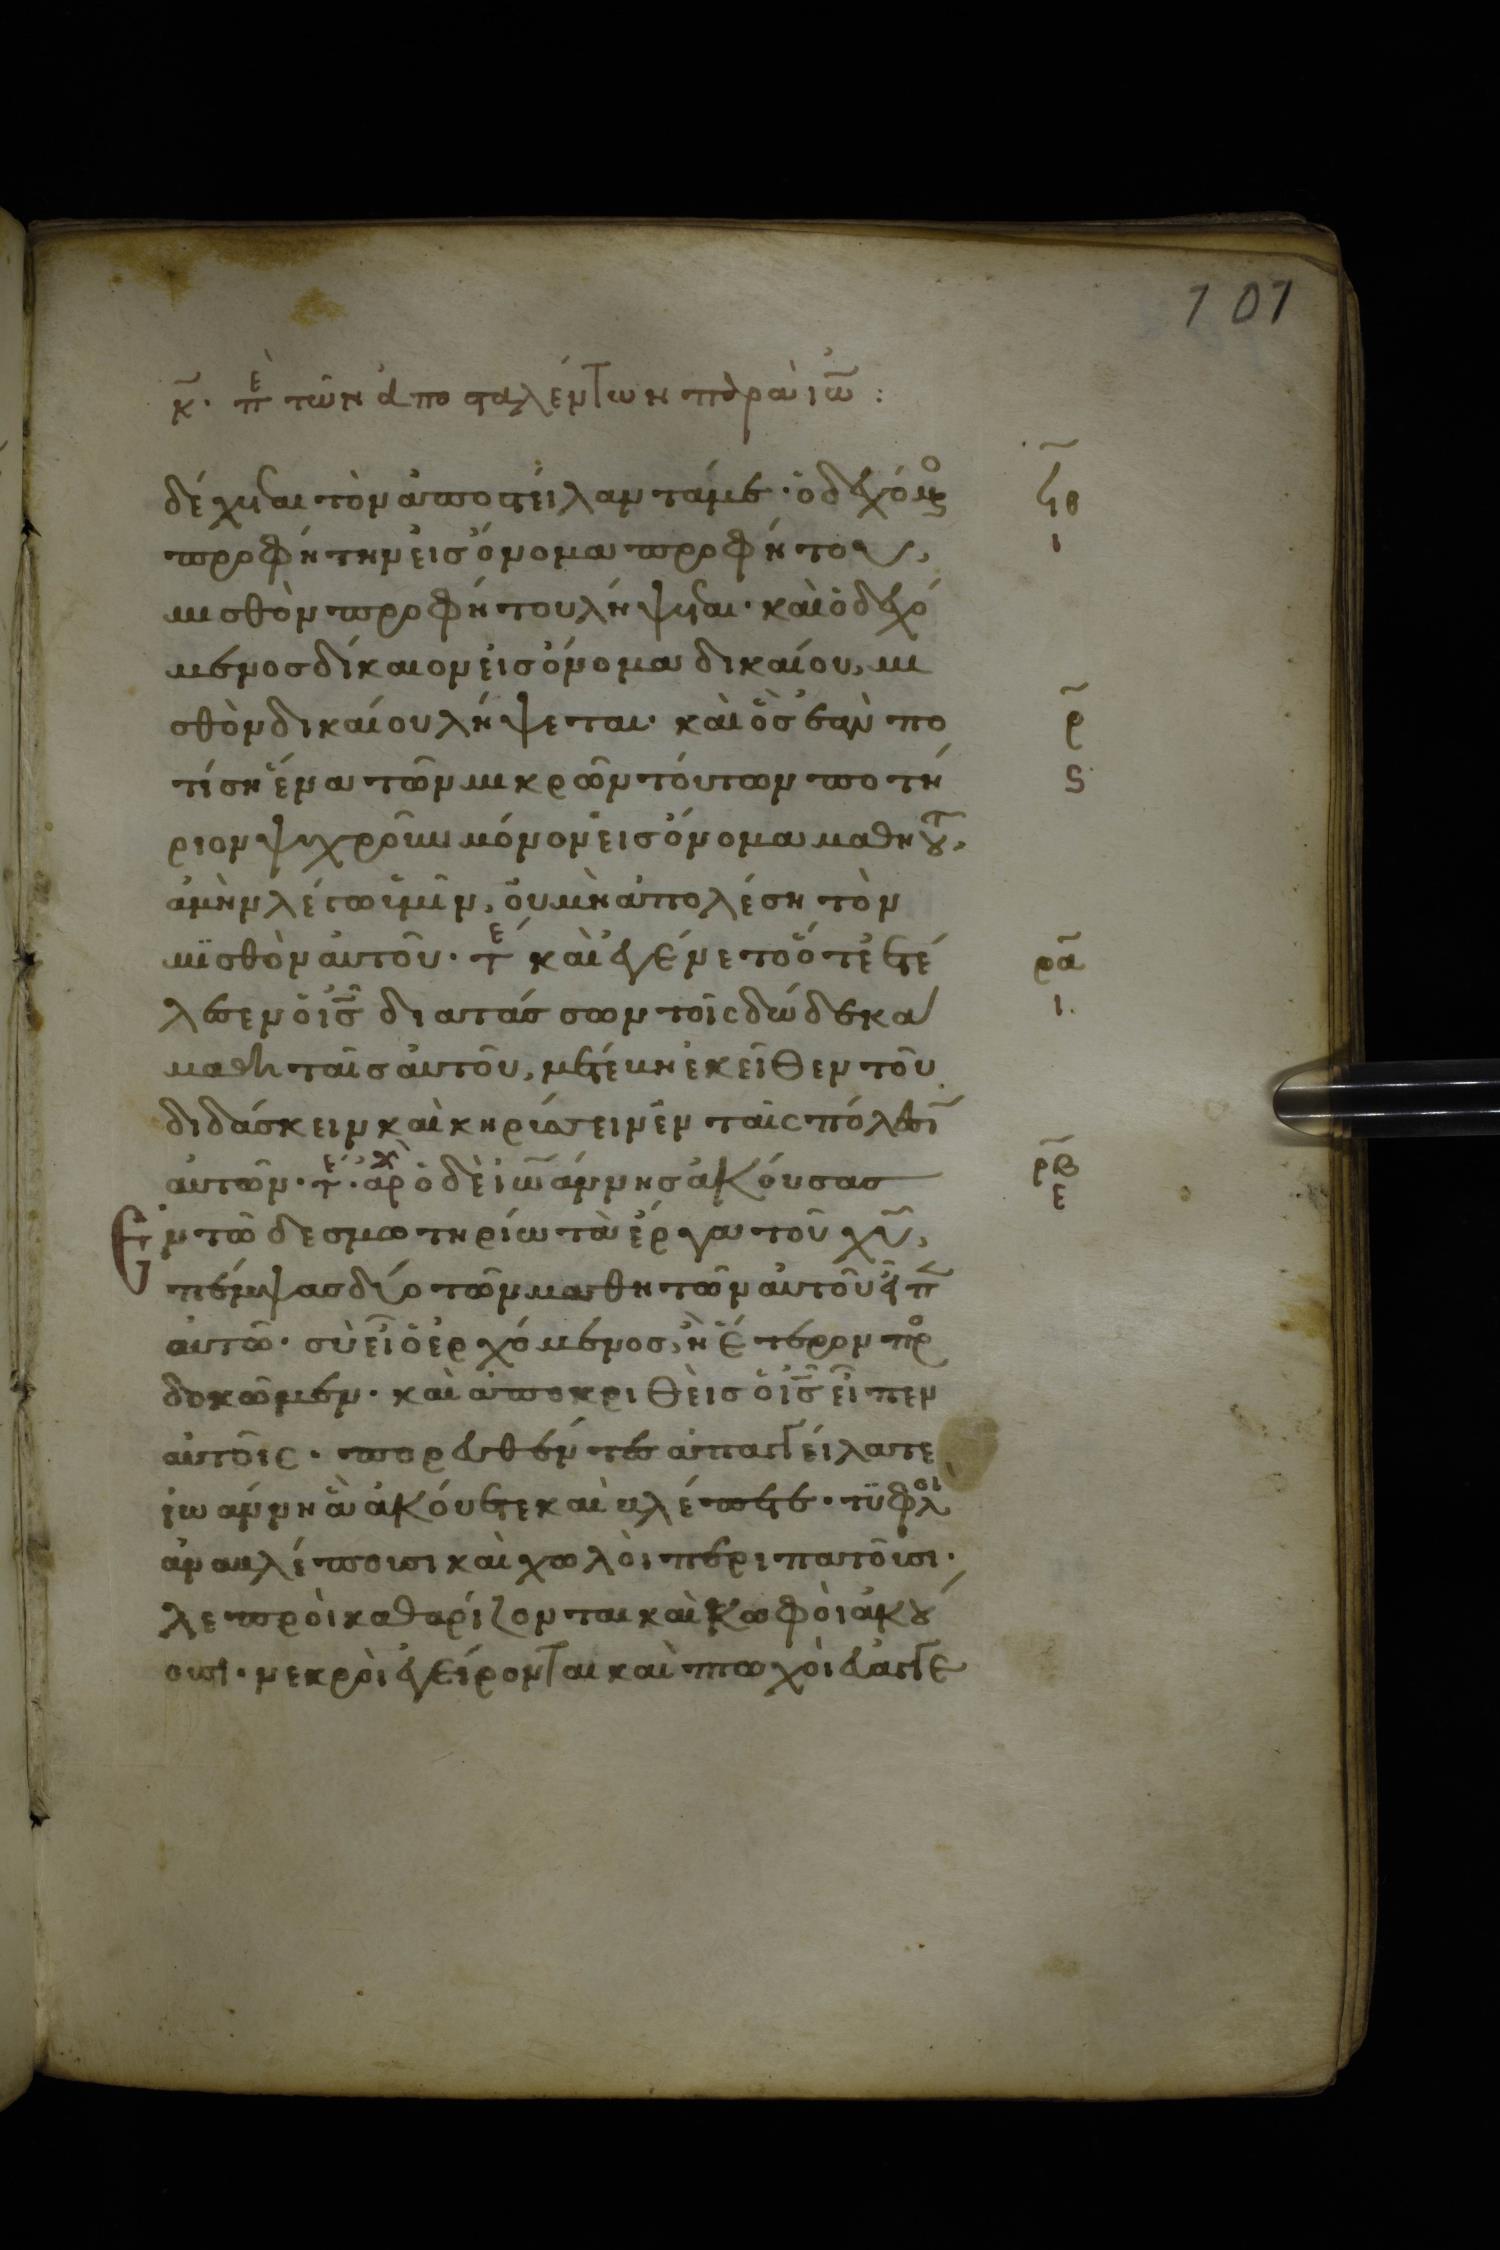 101
κ̄. πὲ τῶν ἀποσταλέντων παρὰ ἰω̄:
δέχεται τὸν ἀποστείλαντά με· ὁ δεχόμενος
ϟθ
ι
προφήτην εἰς ὄνομα προφήτου,
μισθὸν προφήτου λήψεται· καὶ ὁ δεχό
μενος δίκαιον εἰς ὄνομα δικαίου, μι
σθὸν δικαίου λήψεται· καὶ ὃς ἐὰν πο
ρ̄
τίση ἕνα τῶν μικρῶν τούτων ποτή
ς
ριον ψυχροῦ μόνον εἰς ὄνομα μαθητοῦ,
ἀμὴν λέγω ὑμῖν, οὐ μὴ ἀπολέση τὸν
μϊσθὸν αὐτοῦ· τε´ καὶ ἐγένετο ὅτε ἐτέ
ρᾱ
λεσεν ὁ ις̄ διατάσσων τοῖς δώδεκα
ι
μαθηταῖς αὐτοῦ, μετέβη ἐκεῖθεν τοῦ
διδάσκειν καὶ κηρύσσειν ἐν ταῖς πόλεσιν
αὐτῶν· τε´· ἀρχ ὁ δὲ ἰω̄άννης ἀκούσας
ρβ̄
ε
Ἐν τῶ δεσμωτηρίω τὰ ἔργα τοῦ χῡ,
πέμψας δύο τῶν μαθητῶν αὐτοῦ εἶπ̄
αὐτῶ· σὺ εἶ ὁ ἐρχόμενος, ἢ ἕτερον προσ
δοκῶμεν· καὶ ἀποκριθεὶς ὁ ις̄ εἶπεν
αὐτοῖς· πορευθέντες ἀπαγγείλατε
ἰωάννη ἃ ἀκούετε καὶ βλέπετε· τϋφλοὶ
ἀναβλέπουσι καὶ χωλοὶ περιπατοῦσι·
λεπροὶ καθαρίζονται καὶ κωφοὶ ἀκού
ουσι· νεκροὶ ἐγείρονται καὶ πτωχοὶ εὐαγγε